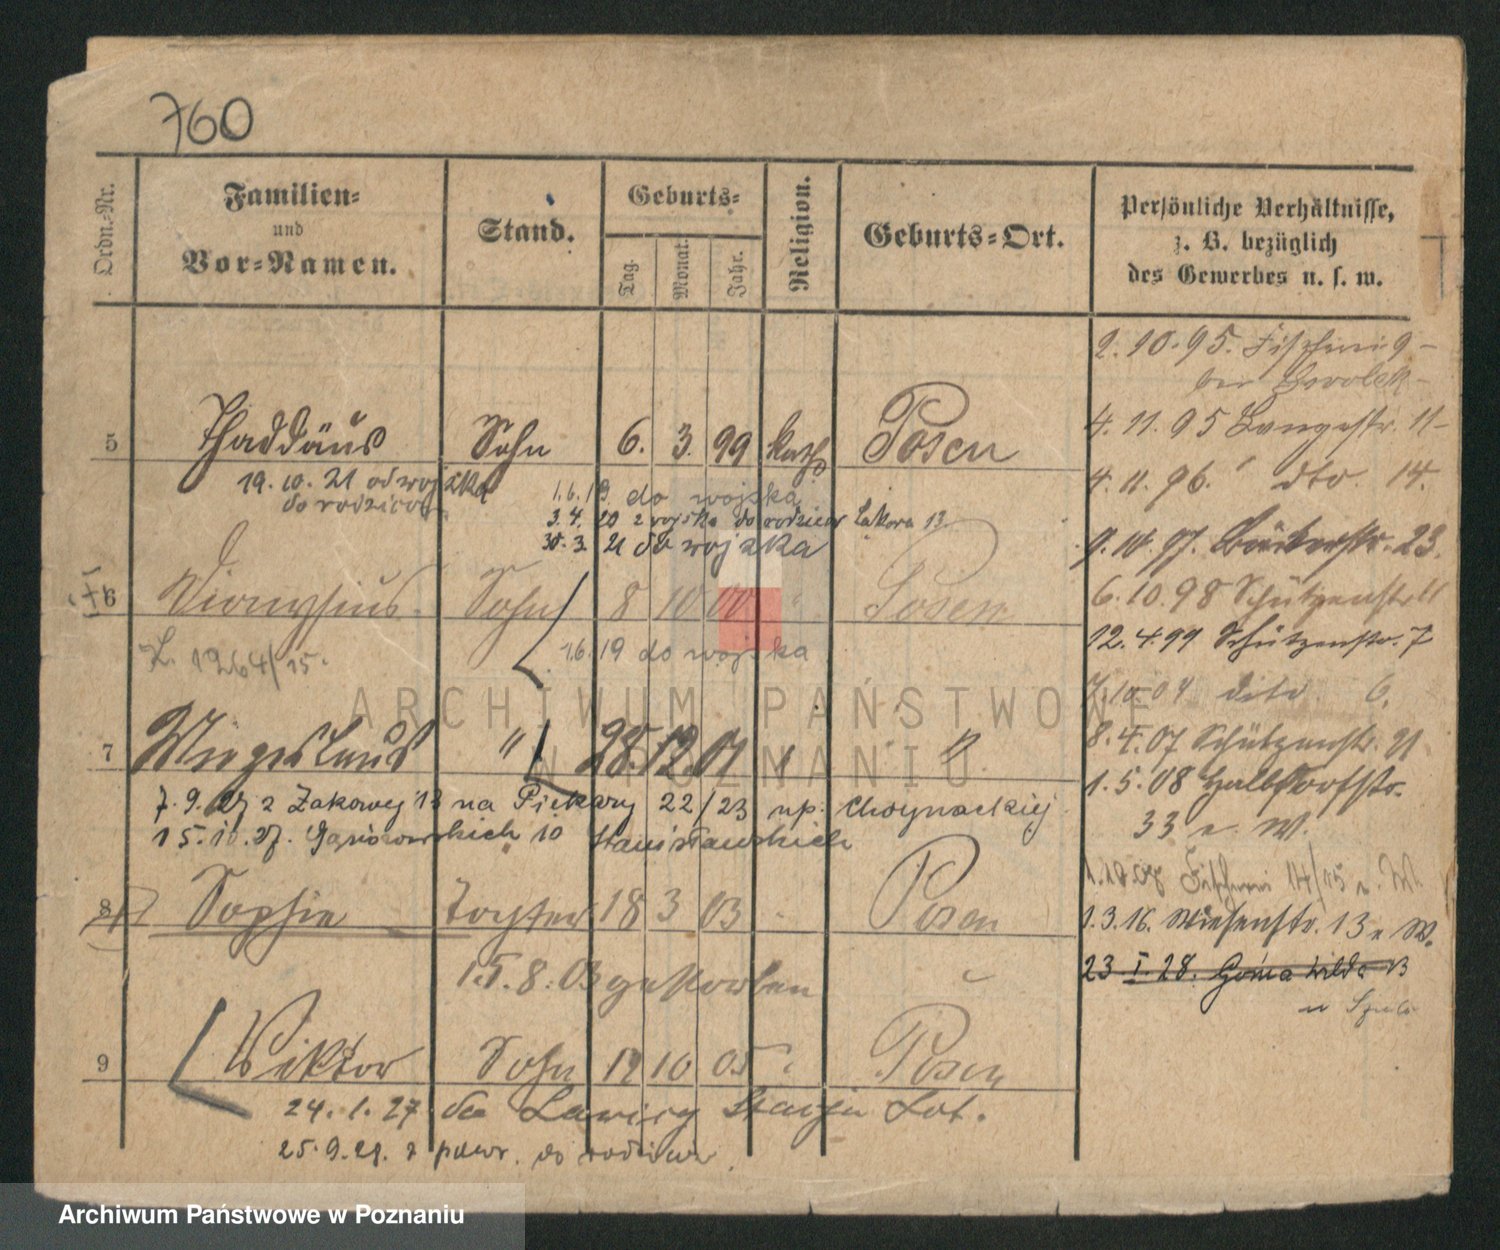 760
Ordn.-Nr.
Familien-
und
Vor-Namen.
Stand.
Geburts-
Tag.
Monat.
Jahr.
Religion.
Geburts-Ort.
Persönliche Verhältnisse,
z. B. bezüglich
des Gewerbes u. s. w.
2. 10. 95. Fischerei 9 -
4. 11. 95 Langestr. 11 -
4. 11. 96. dto. 14.
9. 10. 97. 23.
6. 10. 98 Schützenstr 11
12. 4. 99 Schützenstr. 7
7. 10. 04 dito. 6.
8. 4. 07 Schützenstr. 21
1. 5. 08 Halbdorfstr.
33 n. W.
Fischerei 14/15 n. W.
1. 3. 16. Wiesenstr. 13 n W.
23. I. 28. Górna Wilda
5 Thaddäus Sohn 6. 3. 99 kath Posen
19. 10. 21 od wojska
do rodziców
1. 6. 19. do wojska
3. 4. 20 z wojska do rodziców Łąkowa 13
30. 3. 21 do wojska
6 Dionysius Sohn 8 10 00 " Posen
1264/15.
1.6. 19 do wojska
7 " 28. 12. 01 "
7. 9. 27 z Łąkowej 13 na Piekary 22/23 np. Choynackiej
15. 10. 27. Gąsiorowskich 10 Stanisławskich
8 Sophie Tochter 18 3 03 Posen
15. 8. 03 gestorben
9 Wiktor Sohn 19 10 05 " Posen
24. 1. 27. do Ławicy Stacja Lot.
25. 9. 28. z powr. do rodziców.
ARCHIWUM PAŃSTWOWE
W POZNANIU
Archiwum Państwowe w Poznaniu